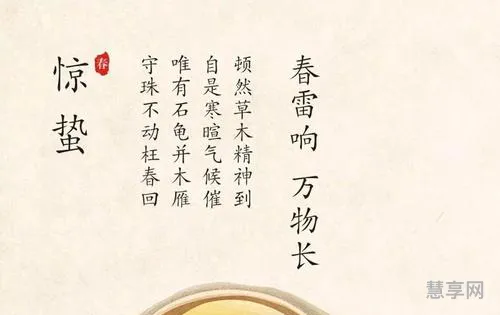 春雷响 万物长
顿然草木精神到
自是寒暄气候催
唯有石龟并木雁
守珠不动枉春回
惊蛰
春
慧享网